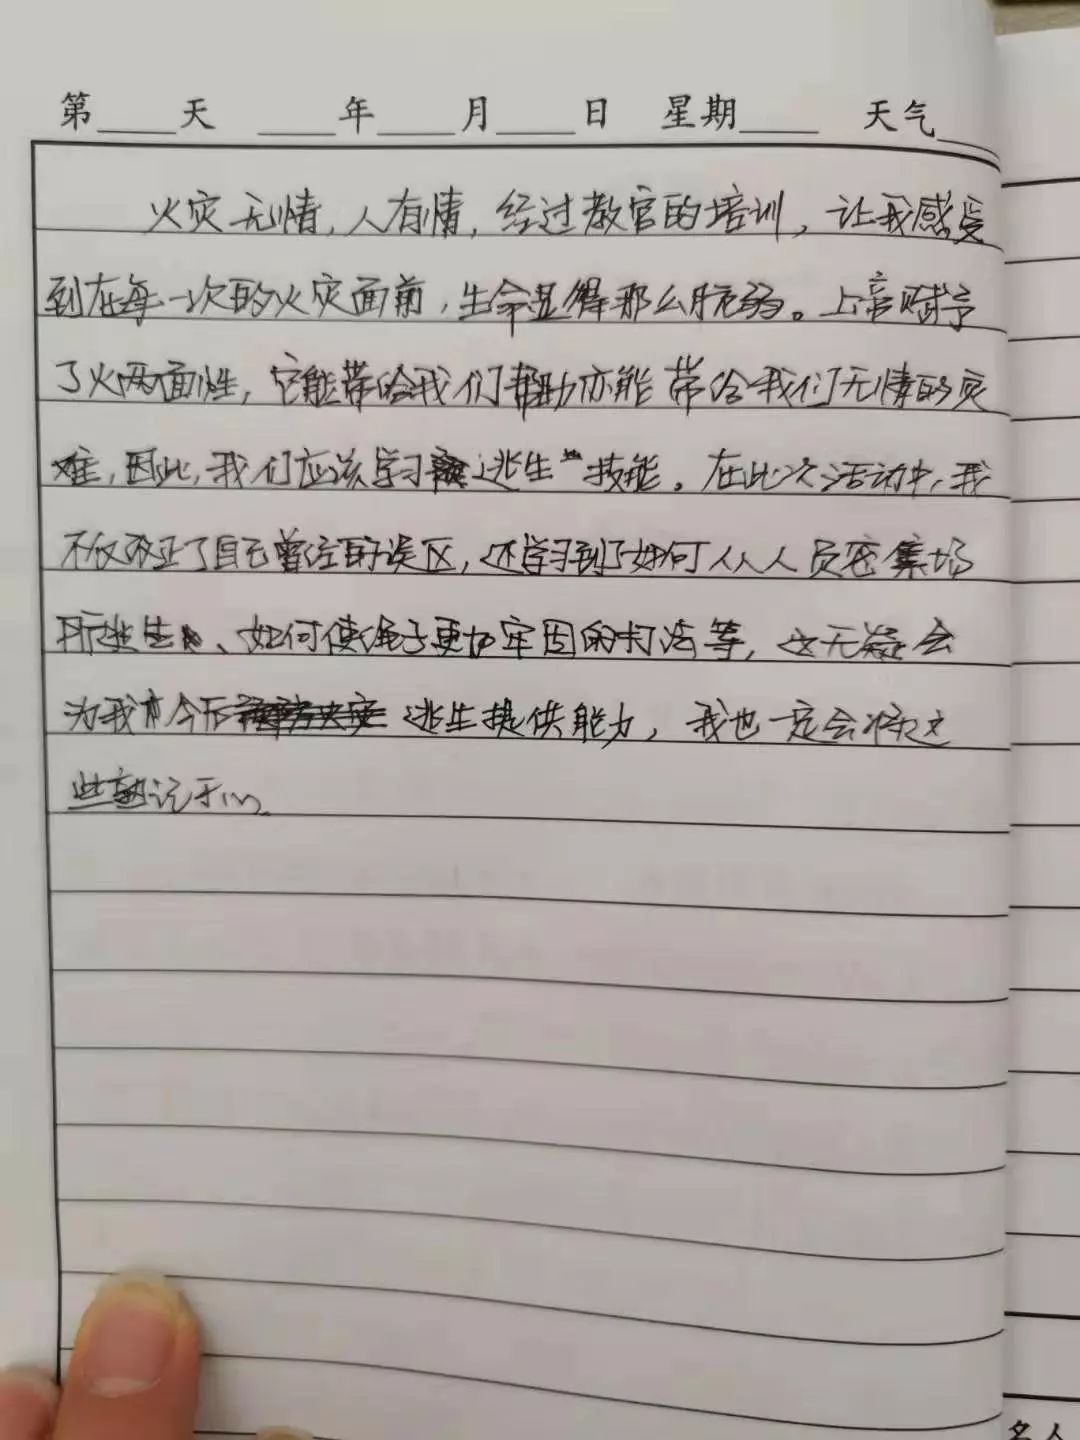 第____天 ____年____月____日 星期____ 天气__
火灾无情,人有情,经过教官的培训,让我感受
到在每一次的火灾面前,生命显得那么脆弱。上帝赋予
了火两面性,它能带给我们帮助亦能带给我们无情的灾
难,因此,我们应该学习逃生技能。在此次活动中,我
不仅改正了自己曾经的误区,还学习到了如何从人员密集场
所逃生、如何使绳子更加牢固的打法等,这无疑会
为我今后逃生提供能力,我也一定会将这
些熟记于心。
名人